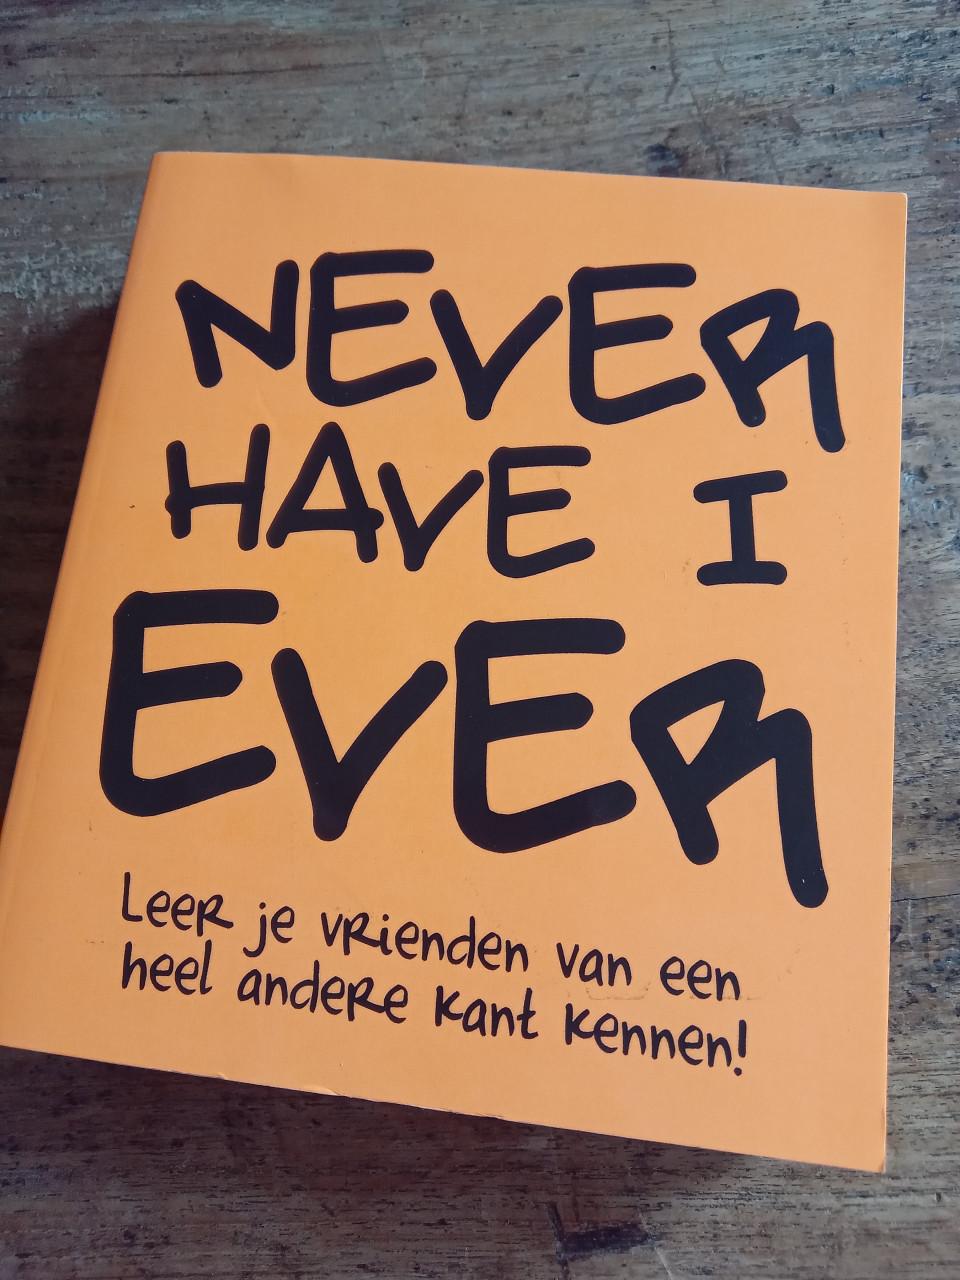 NEVER
HAVE I
EVER
Leer je vrienden van een
heel andere kant kennen!